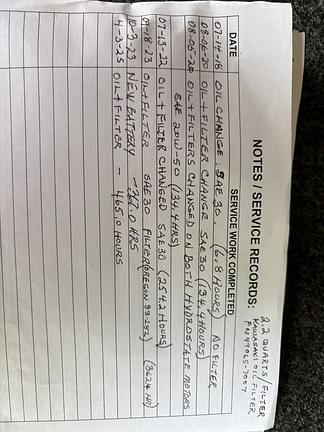 2.2 QUARTS/FILTER
KAWASAKI OIL FILTER
PN 49065-7007
NOTES / SERVICE RECORDS:
DATE SERVICE WORK COMPLETED
07-14-16 OIL CHANGE SAE 30. (6.8 HOURS) NO FILTER
08-06-20 OIL+FILTER CHANGE SAE30 (134.4 HOURS)
08-05-20 OIL+FILTERS CHANGED ON BOTH HYDROSTATE MOTORS
SAE 20W-50 (134.4 HRS)
07-13-22 OIL + FILTER CHANGED SAE30 (254.2 HOURS)
09-18-23 OIL+FILTER SAE30 FILTER (OREGON 83-282) (362.4 HR)
10-3-23 NEW BATTERY - 362.0 HRS
4-3-25 OIL+FILTER - 465.0 HOURS